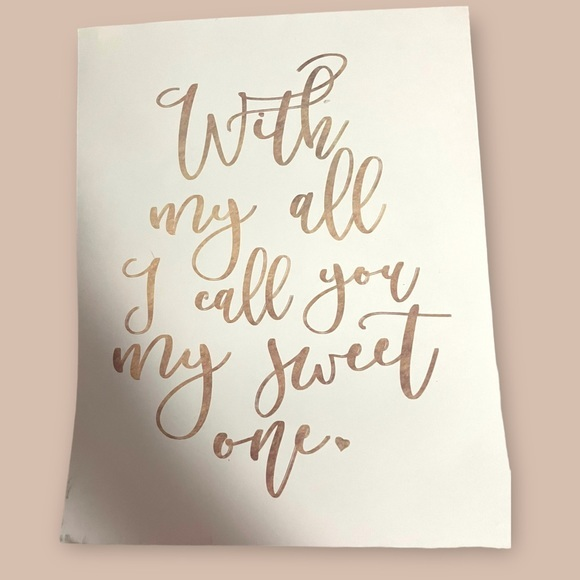 With
my all
I call you
my sweet
one.